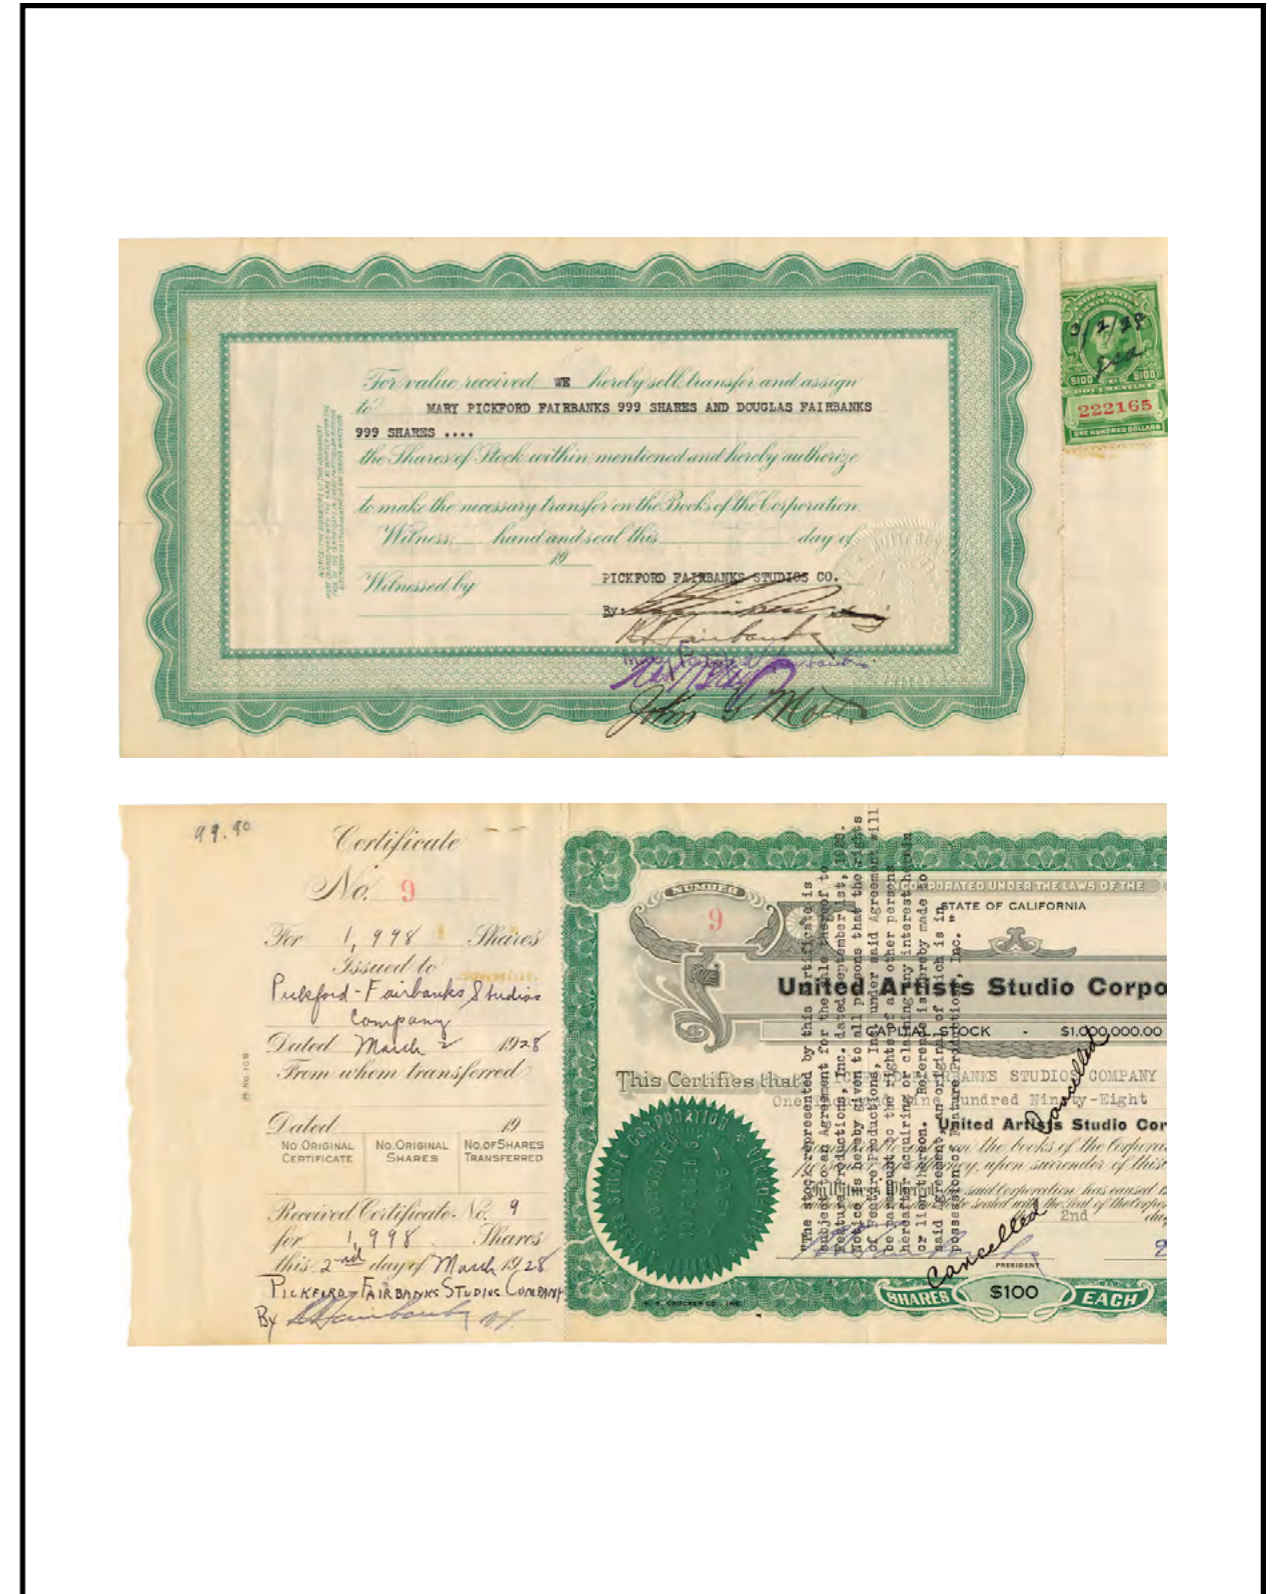 For value received, WE hereby sell, transfer and assign
to MARY PICKFORD FAIRBANKS 999 SHARES AND DOUGLAS FAIRBANKS
999 SHARES ....
the Shares of Stock within mentioned and hereby authorize
to make the necessary transfer on the Books of the Corporation.
Witness hand and seal this day of
19
Witnessed by
PICKFORD FAIRBANKS STUDIOS CO.
By:
John G Mott
3/2/28
$100 $100
DOCUMENTARY
222165
ONE HUNDRED DOLLARS
99.90
Certificate
No. 9
For 1,998 Shares
Issued to
Pickford-Fairbanks Studios
Company
Dated March 2 1928
From whom transferred
Dated 19
NO. ORIGINAL CERTIFICATE
NO. ORIGINAL SHARES
NO. OF SHARES TRANSFERRED
Received Certificate No. 9
for 1,998 Shares
this 2nd day of March 1928
PICKFORD-FAIRBANKS STUDIOS COMPANY
By
NUMBER
9
INCORPORATED UNDER THE LAWS OF THE
STATE OF CALIFORNIA
United Artists Studio Corpo
CAPITAL STOCK - $1,000,000.00
This Certifies that
FAIRBANKS STUDIOS COMPANY
One Thousand Nine Hundred Ninety-Eight
United Artists Studio Cor
on the books of the Corpora
upon surrender of this
the said Corporation has caused
sealed with the seal of the Corpor
2nd
PRESIDENT
SHARES $100 EACH
"The stock represented by this certificate is
subject to an Agreement for the sale thereof to
Feature Productions, Inc. dated September 1st,
Notice is hereby given to all persons that the rights
of Feature Productions, Inc. under said Agreement will
be paramount to the rights of any other persons
hereafter acquiring or claiming any interest therein
or lien thereon. Reference is hereby made to
said Agreement, an original of which is in
possession of Feature Productions, Inc."
Cancelled
Cancelled